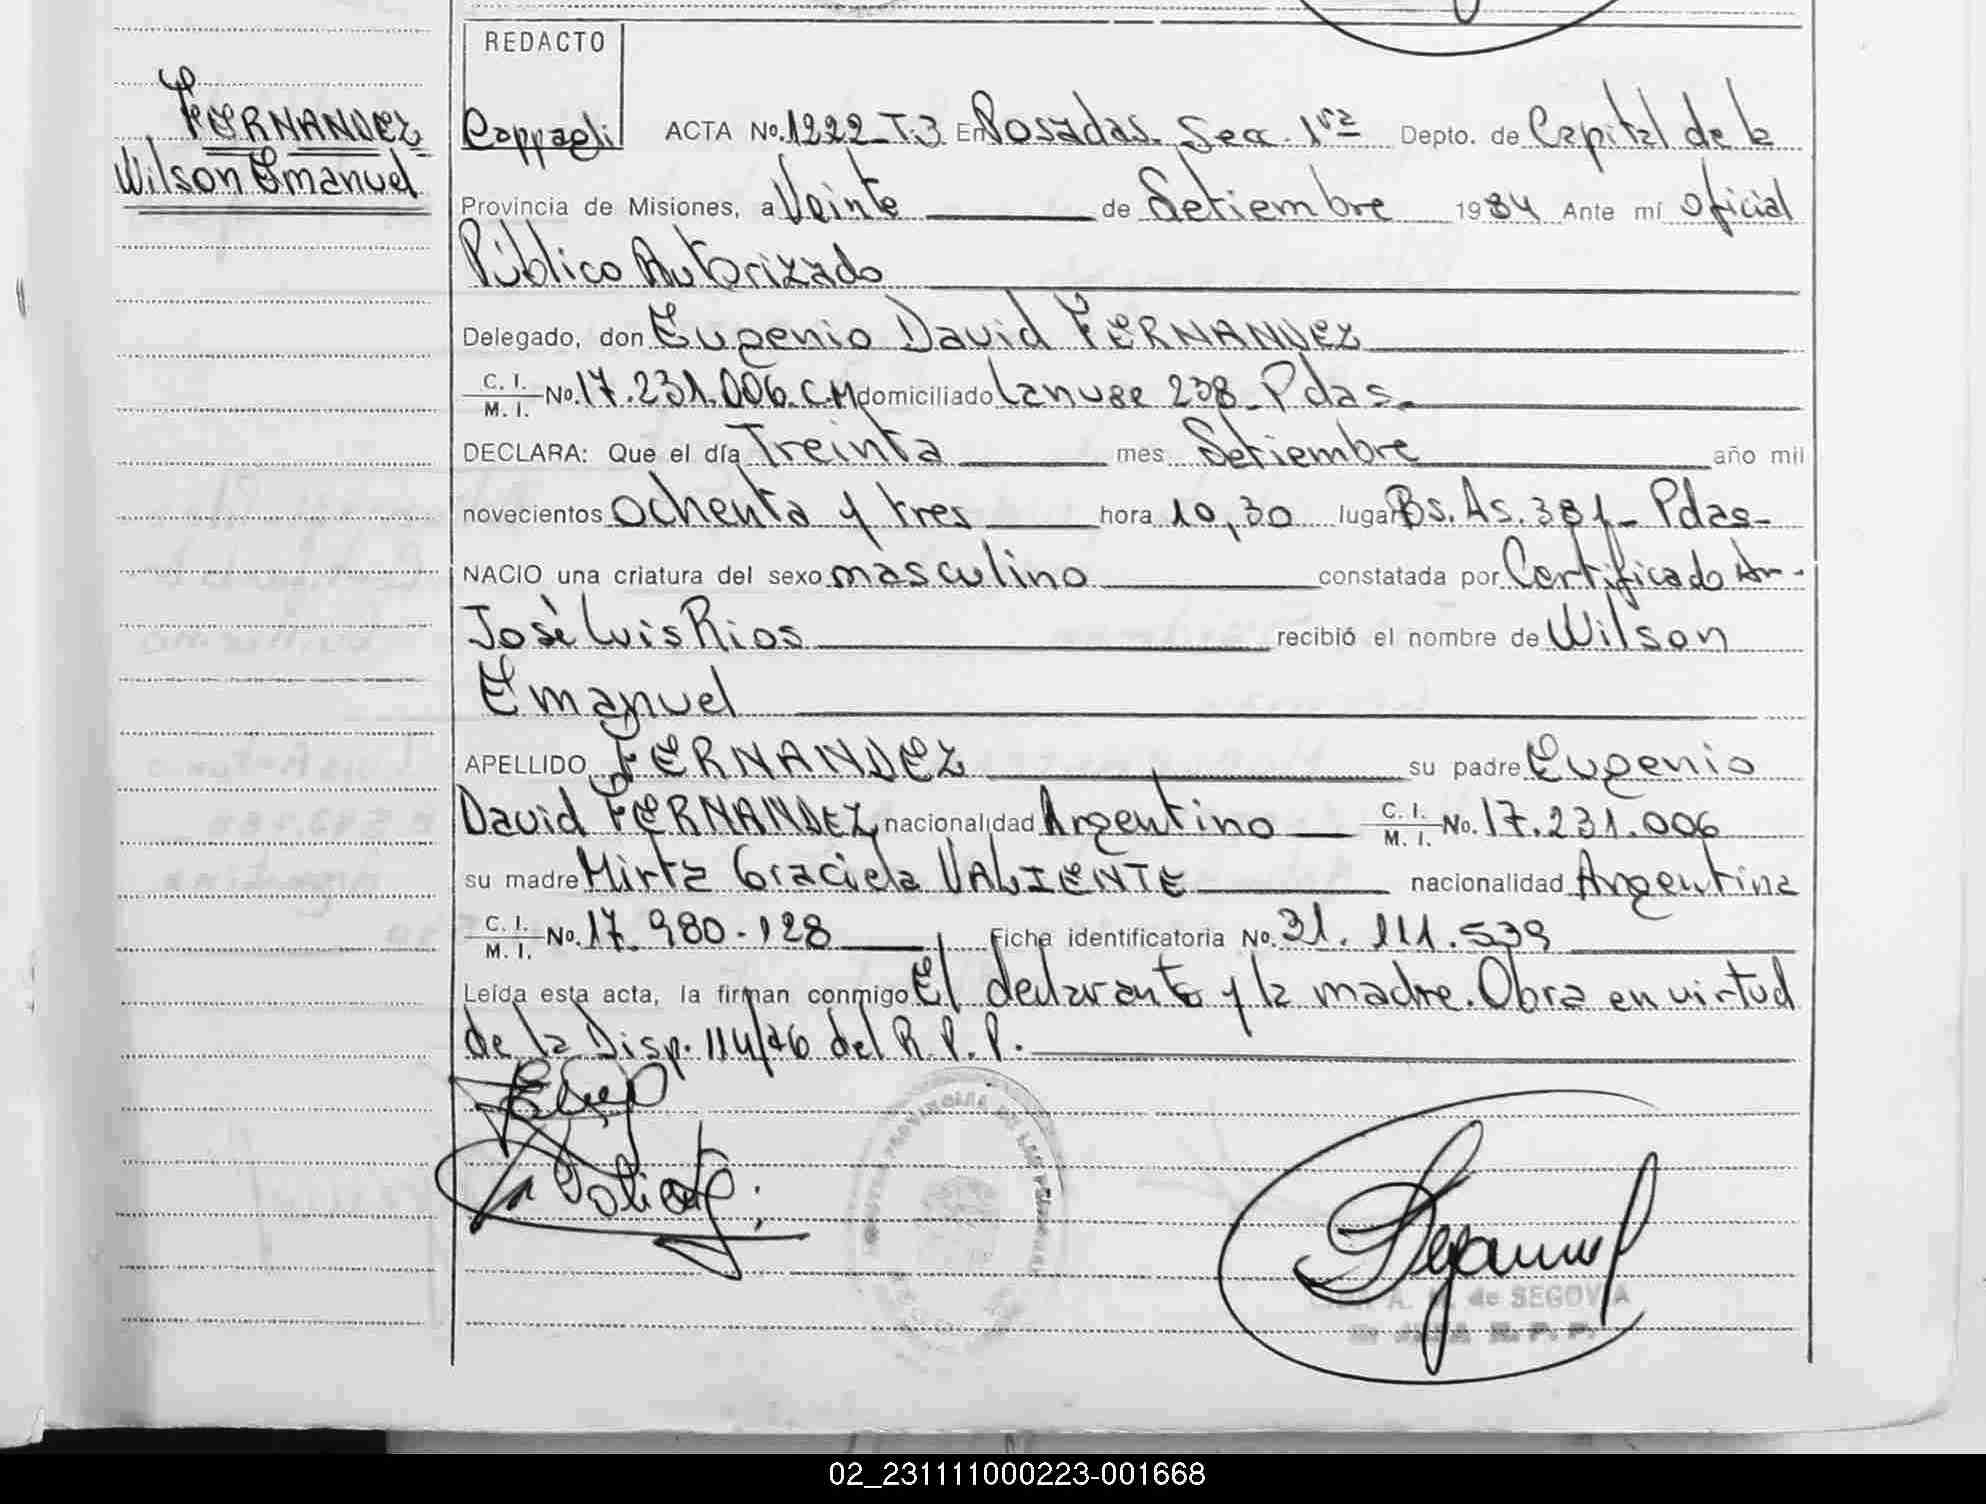 REDACTO
FERNANDEZ
Wilson Emanuel
Cappaeli ACTA No. 1222-T.3 En Posadas. Secc. 1ra Depto. de Capital de la
Provincia de Misiones, a Veinte de Setiembre 1984 Ante mí Oficial
Público Autorizado
Delegado, don Eugenio David FERNANDEZ
C. I.
M. I. No. 17.231.006.C.M domiciliado Lanuse 238-Pdas.
DECLARA: Que el día Treinta mes Setiembre año mil
novecientos Ochenta y tres hora 10,30 lugar Bs. As. 381- Pdas-
NACIO una criatura del sexo masculino constatada por Certificado
José Luis Rios recibió el nombre de Wilson
Emanuel
APELLIDO FERNANDEZ su padre Eugenio
David FERNANDEZ nacionalidad Argentino C. I.
M. I. No. 17.231.006
su madre Mirta Graciela VALIENTE nacionalidad Argentina
C. I.
M. I. No. 17.980.128 Ficha identificatoria No. 31.111.539
Leída esta acta, la firman conmigo El declarante y la madre. Obra en virtud
de la Disp. 114/76 del R. P. P.
de SEGOVIA
R. P. P.
02_231111000223-001668